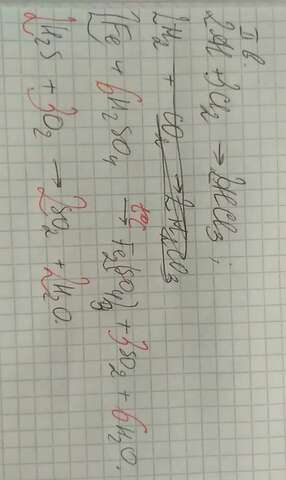 II в.
2Al + 3Cl₂ → 2AlCl₃;
2Fe + 6H₂SO₄ →to Fe₂(SO₄)₃ + 3SO₂ + 6H₂O.
2H₂S + 3O₂ → 2SO₂ + 2H₂O.